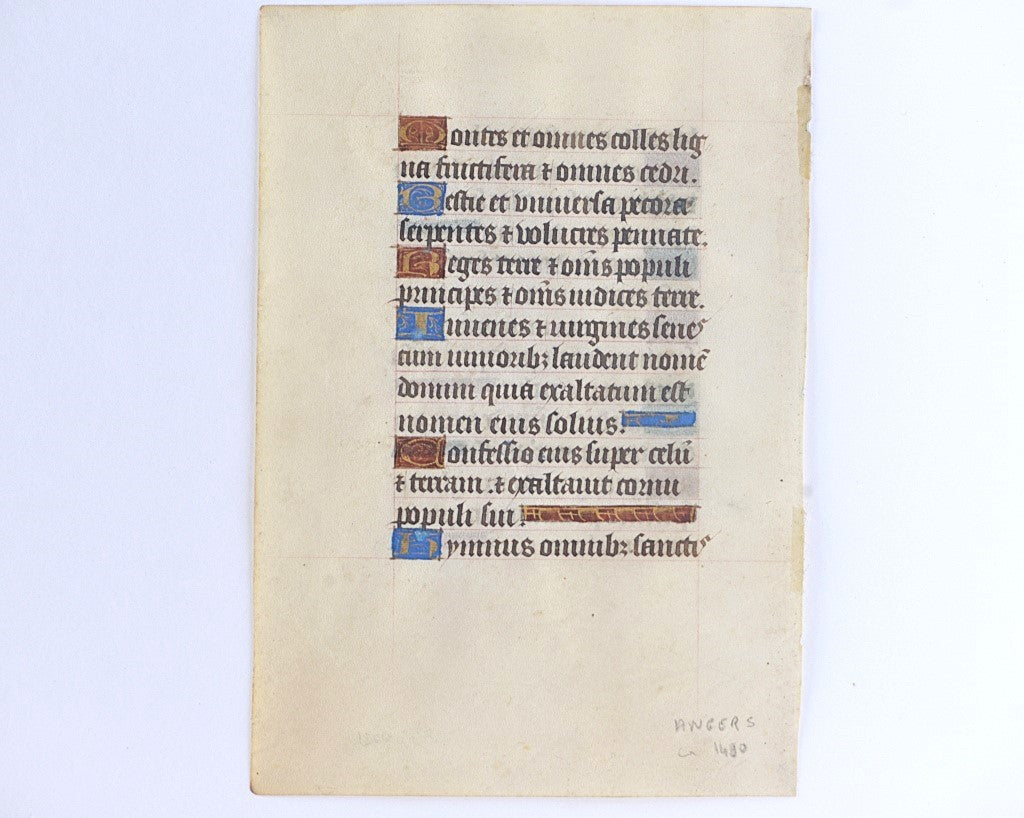 Montes et omnes colles lig
na fructifera ⁊ omnes cedri.
Bestie et vniuersa pecora
serpentes ⁊ volucres pennate.
Reges terre ⁊ om̄s populi
principes ⁊ om̄s iudices terre.
Iuuenes ⁊ uirgines senes
cum iunioribꝫ laudent nomē
domini quia exaltatum est
nomen eius solius.
Confessio eius super celū
⁊ terram . ⁊ exaltauit cornu
populi sui.
Hymnus omnibꝫ sanctis
ANGERS
ca 1480